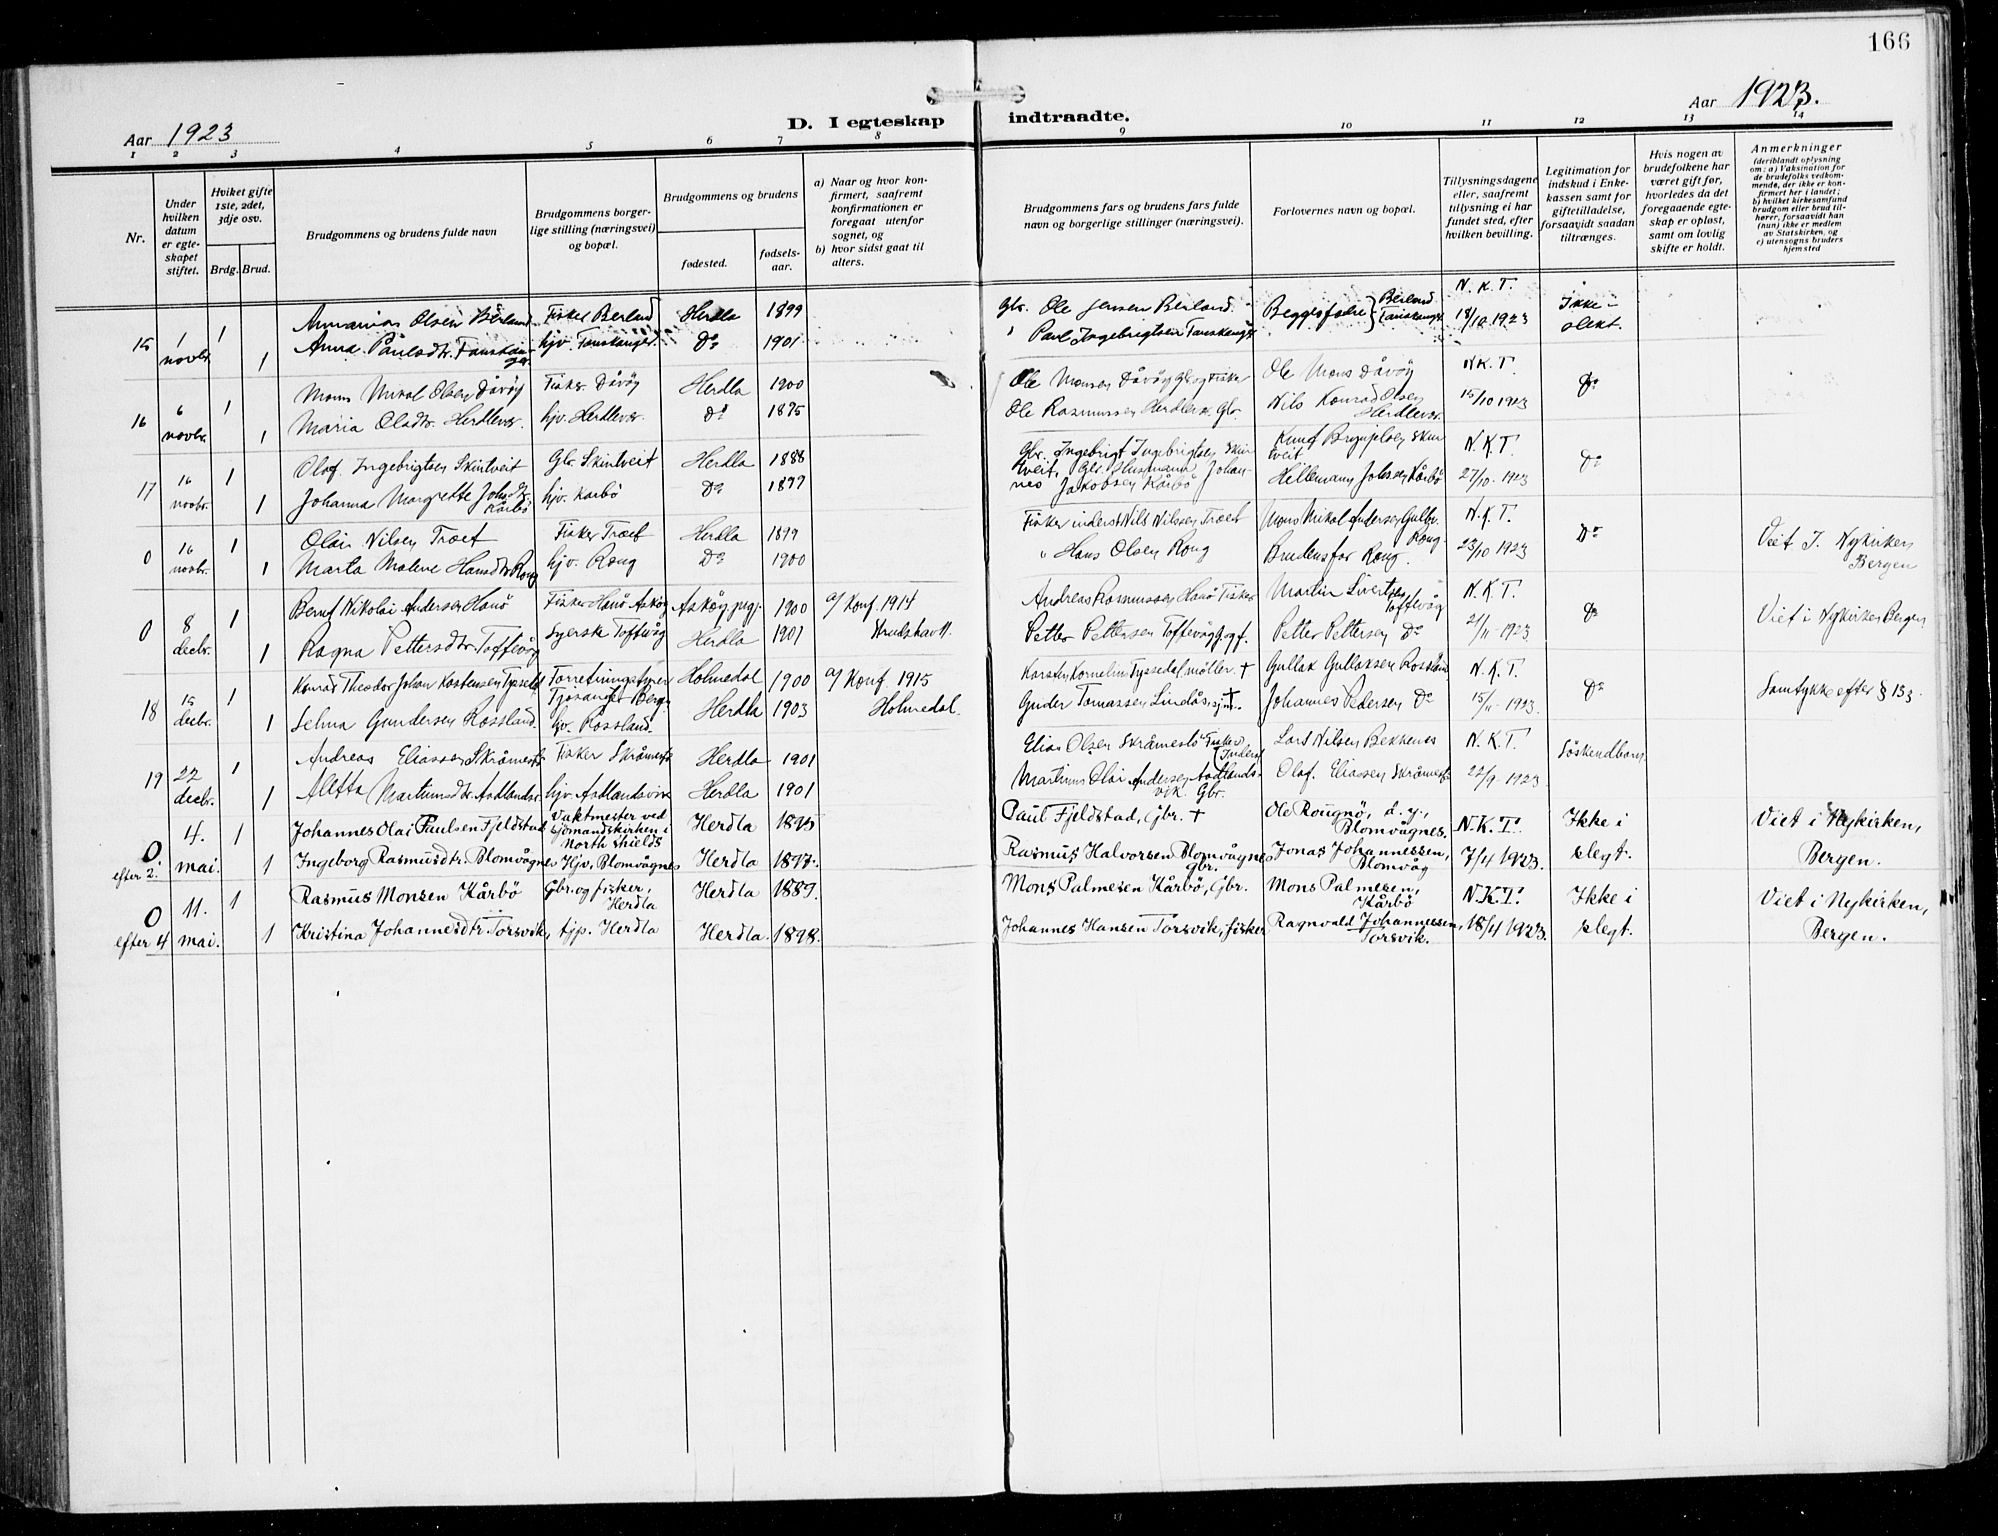 166
Aar 1923
D. I egteskap indtraadte.
Aar 1923.
1 2 3 4 5 6 7 8 9 10 11 12 13 14
Nr.
Under hvilken datum er egteskapet stiftet.
Hviket gifte 1ste, 2det, 3dje osv.
Brdg. Brud.
Brudgommens og brudens fulde navn
Brudgommens borgerlige stilling (næringsvei) og bopæl.
Brudgommens og brudens
fødested.
fødselsaar.
a) Naar og hvor konfirmert, saafremt konfirmationen er foregaat utenfor sognet, og
b) hvor sidst gaat til alters.
Brudgommens fars og brudens fars fulde navn og borgerlige stillinger (næringsvei).
Forlovernes navn og bopæl.
Tillysningsdagene eller, saafremt tillysning ei har fundet sted, efter hvilken bevilling.
Legitimation for indskud i Enkekassen samt for giftetilladelse, forsaavidt saadan tiltrænges.
Hvis nogen av brudefolkene har været gift før, hvorledes da det foregaaende egteskap er opløst, samt om lovlig skifte er holdt.
Anmerkninger
(deriblandt oplysning om: a) Vaksination for de brudefolks vedkommende, der ikke er konfirmert her i landet; b) hvilket kirkesamfund brudgom eller brud tilhører, forsaavidt han (hun) ikke er medlem av Statskirken, og c) utensogns bruders hjemsted
15 1 novbr. 1 Ananias Olsen Berland Fisker Berland Herdla 1899 Gbr. Ole Jensen Berland Begges fædre Berland N.K.T. Ikke i
1 Anna Paulsdtr. Tanskanger hjv. Tanskanger. Do 1901 " Paul Ingebrigtsen Tanskanger Tanskanger 18/10 1923 slekt.
16 6 novbr. 1 Mons Mikal Olsen Dåvøy Fisker Dåvøy Herdla 1900 Ole Monsen Dåvøy Gbr og Fisker Ole Mons Dåvöy N.K.T. Do
1 Maria Olsdtr. Herdlevær hjv. Herdlevær. Do 1895 Ole Rasmussen Herdlevr. Gbr. Nils Konrad Olsen Herdlevær 15/10 1923
17 16 novbr. 1 Olaf Ingebrigtsen Skintveit Gbr Skintveit Herdla 1888 Gbr. Ingebrigt Ingebrigtsen Skintveit, Gbr. Husmann Johannes Jakobsen Kårbö Knut Brynjelsen Skintveit N.K.T. Do
1 Johanna Margrette Johsdtr. Kårbö hjv. Karbö Do 1899 Hillemann Johssen Kårbö 27/10 1923
0 16 novbr. 1 Olai Nilsen Træet Fisker Træet Herdla 1899 Fisker inderst Nils Nilsen Træet Mons Mikal Andersen Gulbr. Rong N.K.T. Do Viet I Nykirken Bergen
1 Marta Malene Hansdtr Rong hjv. Rong Do 1900 " Hans Olsen Rong Brudens far Rong. 23/10 1923
0 8 decbr. 1 Bernt Nikolai Andersen Hanö Fisker Hanö Askøy Askøy pgj. 1900 a/ Konf. 1914 Andreas Rasmussen Hanö Fisker Martin Sivertsen Toftevåg N.K.T. Do Viet i Nykirken Bergen
1 Ragna Pettersdtr. Toftevåg Syerske Toftevåg Herdla 1901 Petter Pettersen Toftevåg Petter Pettersen Do 21/11 1923
18 15 decbr. 1 Konrad Theodor Johan Karstensen Tyssedal Forretningsfyrer Holmedal 1900 a/ Konf 1915 Holmedal. Karsten Kornelius Tyssedal möller. † Gullak Gullaksen Rossland N.K.T. Do Samtykke efter § 153
1 Selma Gundersen Rossland. hjv. Rossland. Herdla 1903 Gunder Tomassen Lindås, sjm. † Johannes Pedersen Do 15/11 1923.
19 22 decbr. 1 Andreas Eliassen Skråmestö Fisker Skråmestö Herdla 1901 Elias Olsen Skråmestö Fisker Inderst Lars Nilsen Bekkenes N.K.T. Söskendbarn
1 Aletta Martinusdtr. Aadlandsv. hjv. Adlandsvik Herdla 1901 Martinus Olai Andersen Aadlandsvik. Gbr. Olaf Eliassen Skråmestö 22/9 1923
0 efter 2. 4. mai. 1 Johannes Olai Paulsen Fjeldstad Vaktmester ved sjömandskirken i North Shields Herdla 1895 Paul Fjeldstad, Gbr. † Ole Rougnö, d. y., Blomvågnes. N.K.T. Ikke i Viet i Nykirken,
1 Ingeborg Rasmusdtr. Blomvågnes Hjv. Blomvågnes Herdla 1897. Rasmus Halvorsen Blomvågnes Gbr. Jonas Johannessen, Blomvåg 7/4 1923. slegt. Bergen.
0 efter 4 11. mai. 1 Rasmus Monsen Kårbö Gbr. og fisker, Herdla Herdla 1889. Mons Palmesen Kårbö, Gbr. Mons Palmesen, Kårbö N.K.T. Ikke i Viet i Nykirken,
1 Kristina Johannesdtr. Torsvik, tjp. Herdla Herdla. 1898. Johannes Hansen Torsvik, fisker Ragnvald Johannessen, Torsvik. 18/4 1923. slegt. Bergen.